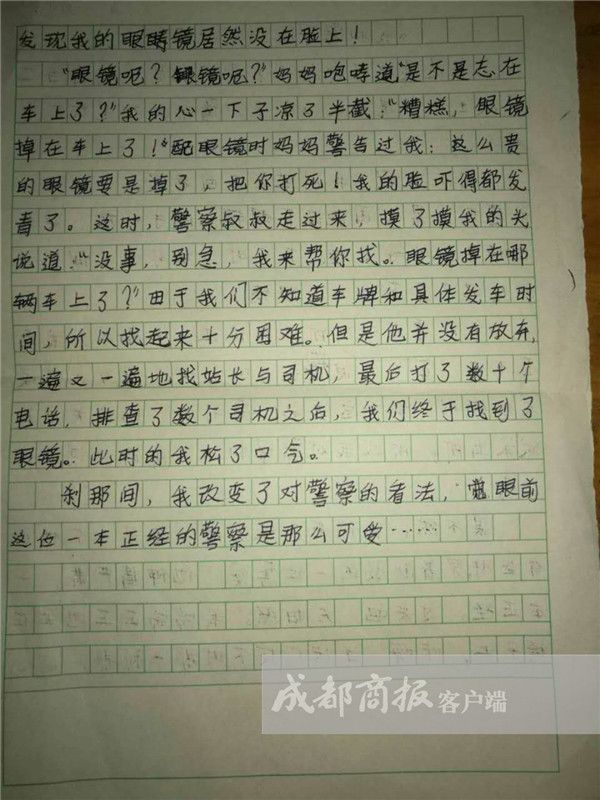 发现我的眼睛镜居然没在脸上！
“眼镜呢？眼镜呢？”妈妈咆哮道“是不是忘在
车上了？”我的心一下子凉了半截：“糟糕，眼镜
掉在车上了！”配眼镜时妈妈警告过我：这么贵
的眼镜要是掉了，把你打死！我的脸吓得都发
青了。这时，警察叔叔走过来，摸了摸我的头
说道：“没事，别急，我来帮你找。眼镜掉在哪
辆车上了？”由于我们不知道车牌和具体发车时
间，所以找起来十分困难。但是他并没有放弃，
一遍又一遍地找站长与司机，最后打了数十个
电话，排查了数个司机之后，我们终于找到了
眼镜。此时的我松了口气。
刹那间，我改变了对警察的看法，觉眼前
这位一本正经的警察是那么可爱……
成都商报客户端